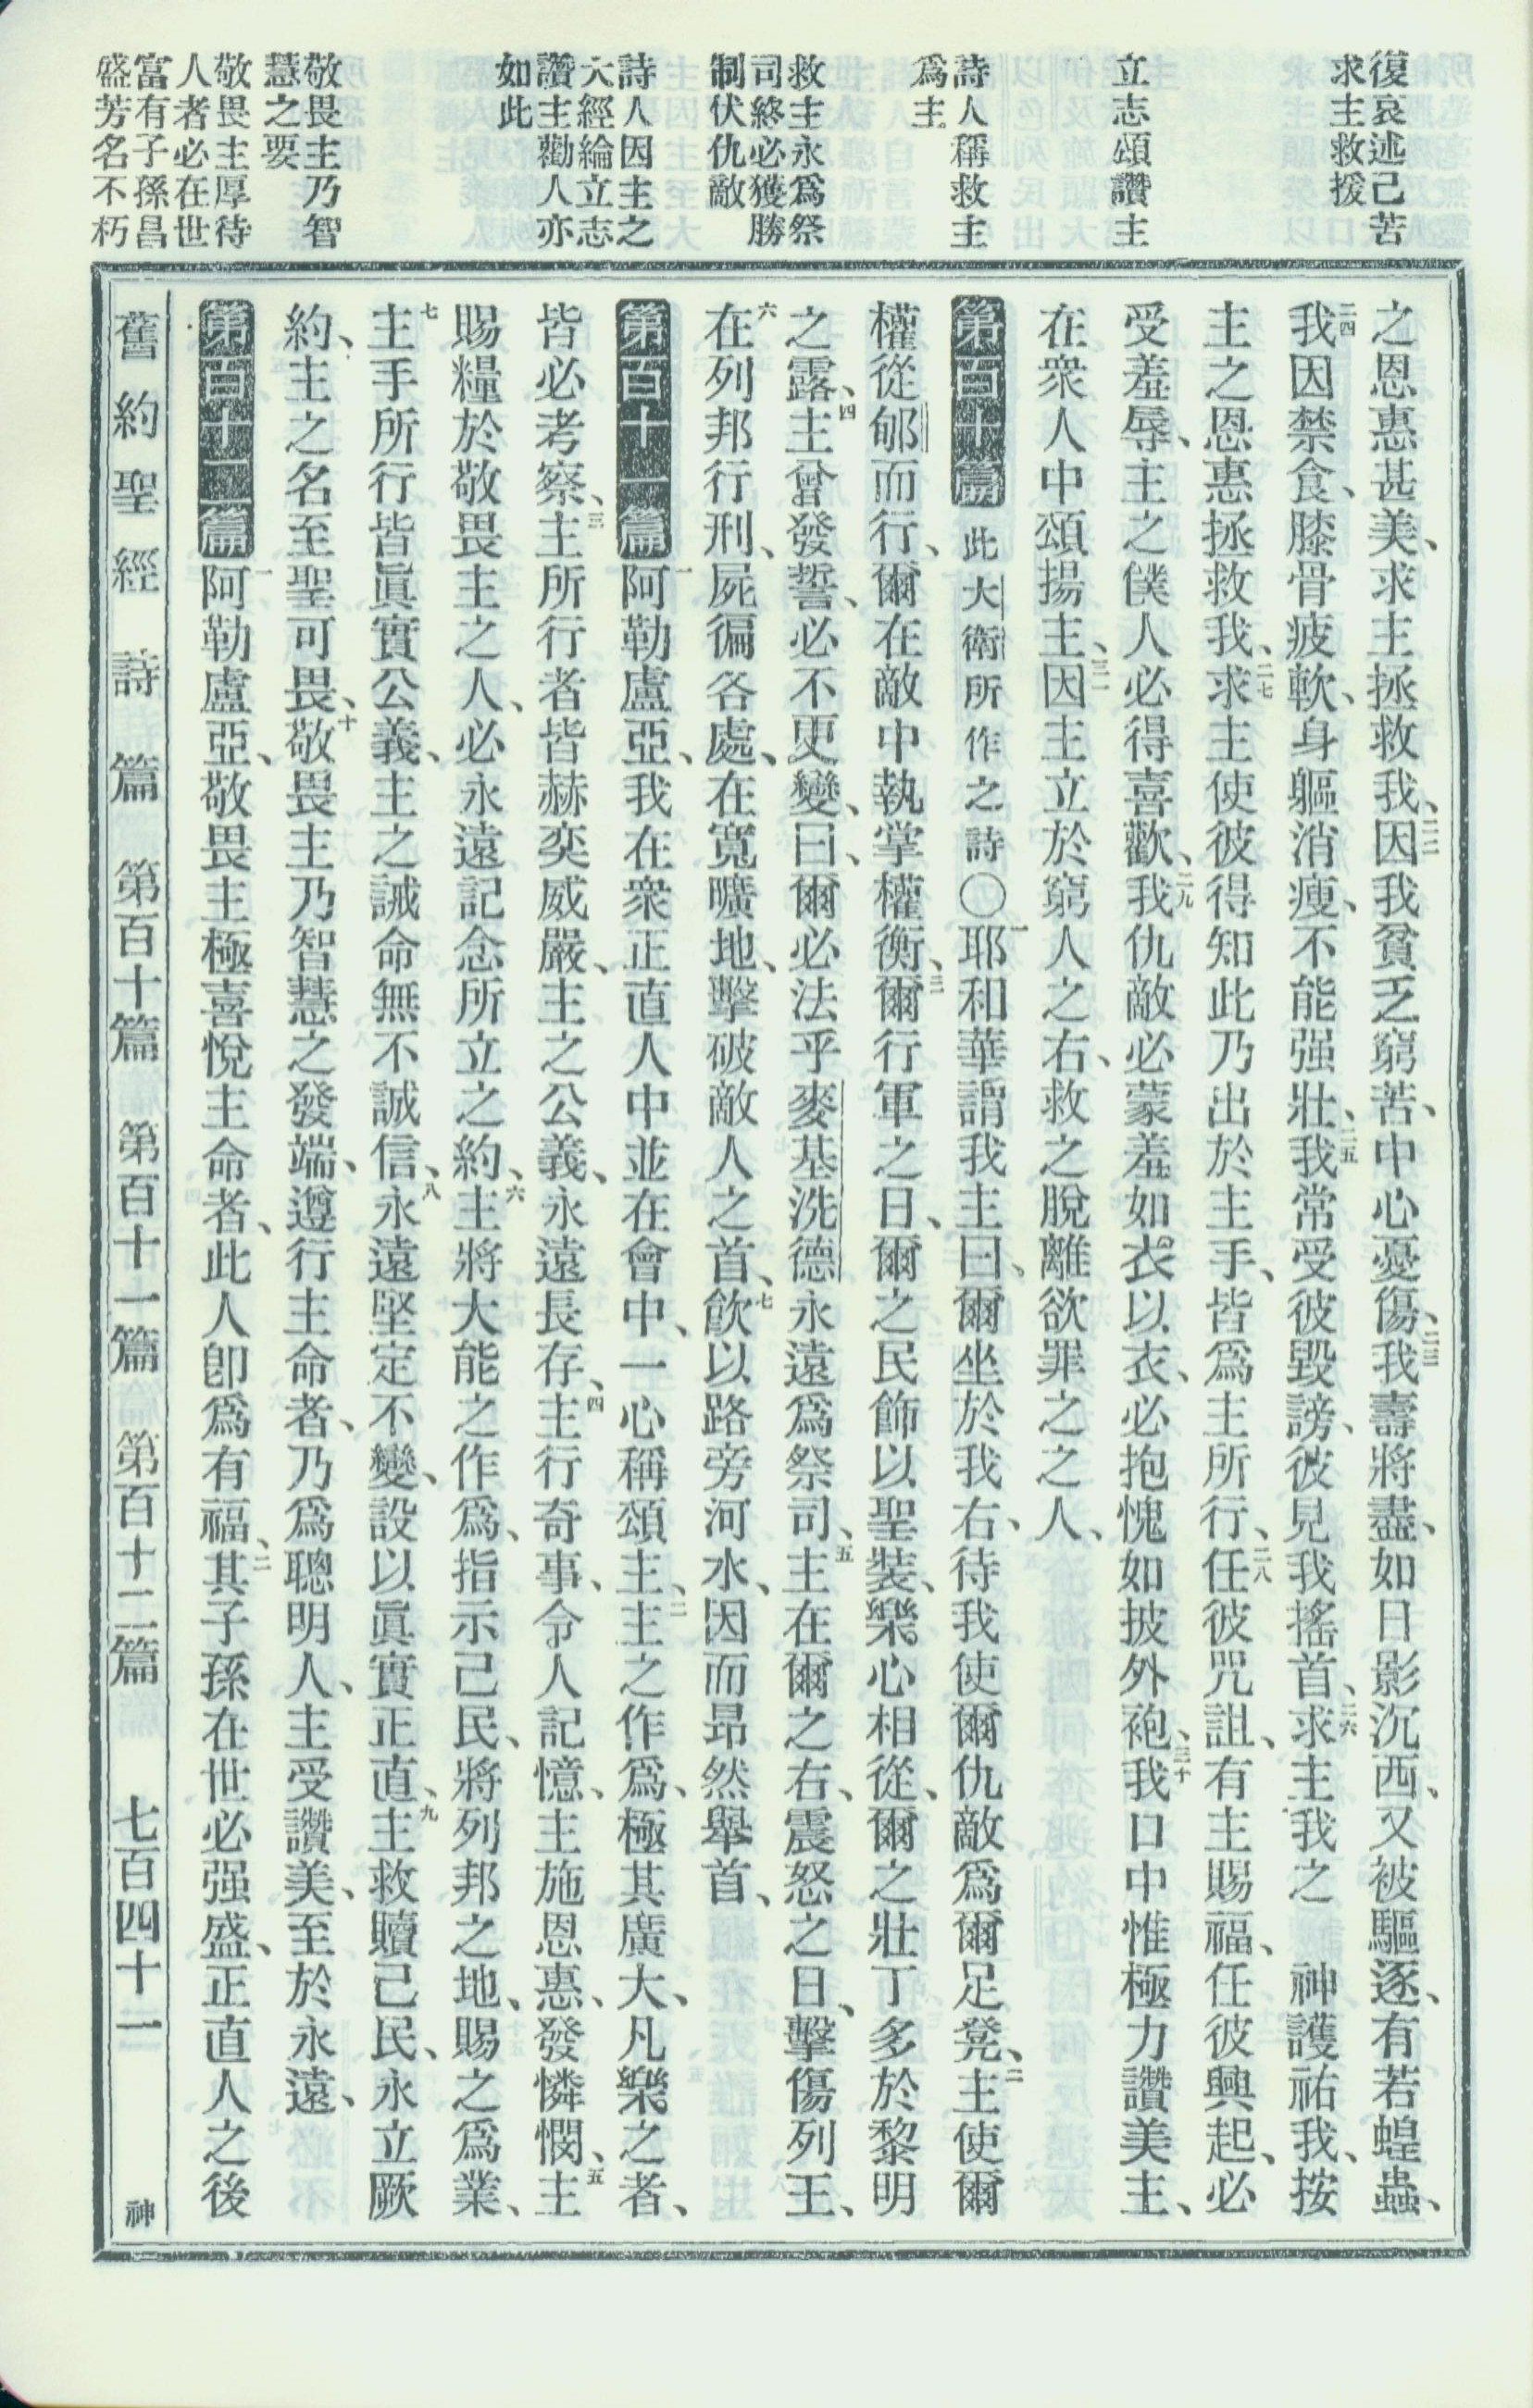 復哀述己苦
求主救援
立志頌讚主
詩人稱救主
爲主
救主永爲祭
司終必獲勝
制伏仇敵
詩人因主之
大經綸立志
讚主勸人亦
如此
敬畏主乃智
慧之要
敬畏主厚待
人者必在世
富有子孫昌
盛芳名不朽
之恩惠甚美、求主拯救我、二二因我貧乏窮苦、中心憂傷、二三我壽將盡、如日影沉西、又被驅逐、有若蝗蟲、
二四我因禁食、膝骨疲軟、身軀消瘦、不能强壯、二五我常受彼毀謗、彼見我搖首、二六求主我之　神護祐我、按
主之恩惠拯救我、二七求主使彼得知此乃出於主手、皆爲主所行、二八任彼咒詛、有主賜福、任彼興起、必
受羞辱、主之僕人必得喜歡、二九我仇敵必蒙羞如衣以衣、必抱愧如披外袍、三十我口中惟極力讚美主、
在衆人中頌揚主、三一因主立於窮人之右、救之脫離欲罪之之人、
第百十篇 此大衛所作之詩〇一耶和華謂我主曰、爾坐於我右、待我使爾仇敵爲爾足凳、二主使爾
權從郇而行、爾在敵中執掌權衡、三爾行軍之日、爾之民飾以聖裝、樂心相從、爾之壯丁多於黎明
之露、四主曾發誓、必不更變、曰、爾必法乎麥基洗德永遠爲祭司、五主在爾之右、震怒之日、擊傷列王、
六在列邦行刑、屍徧各處、在寬曠地、擊破敵人之首、七飲以路旁河水、因而昂然舉首、
第百十一篇 一阿勒盧亞、我在衆正直人中並在會中、一心稱頌主、二主之作爲、極其廣大、凡樂之者、
皆必考察、三主所行者皆赫奕威嚴、主之公義、永遠長存、四主行奇事、令人記憶、主施恩惠、發憐憫、五主
賜糧於敬畏主之人、必永遠記念所立之約、六主將大能之作爲、指示己民、將列邦之地、賜之爲業、
七主手所行皆眞實公義、主之誡命無不誠信、八永遠堅定不變、設以眞實正直、九主救贖己民、永立厥
約、主之名至聖可畏、十敬畏主乃智慧之發端、遵行主命者、乃爲聰明人、主受讚美、至於永遠、
第百十二篇 一阿勒盧亞、敬畏主極喜悅主命者、此人卽爲有福、二其子孫在世必强盛、正直人之後
舊約聖經　詩篇　第百十篇　第百十一篇　第百十二篇　七百四十一　神